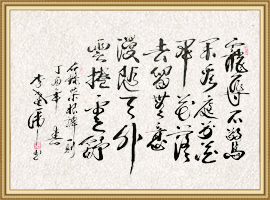 寵辱不驚
閑看庭前花
開花落
去留無意
漫隨天外
雲捲雲舒